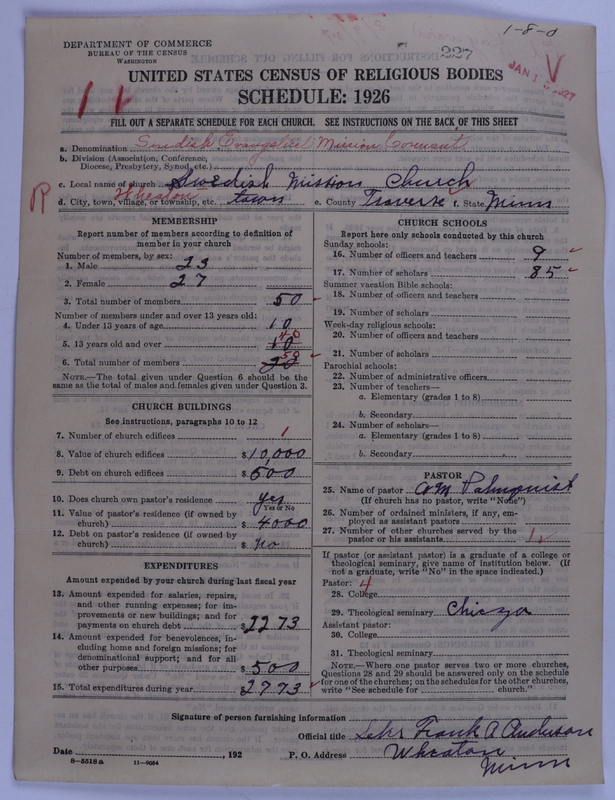 1-8-0
DEPARTMENT OF COMMERCE
BUREAU OF THE CENSUS
WASHINGTON
227
JAN 1 1927
V
UNITED STATES CENSUS OF RELIGIOUS BODIES
SCHEDULE: 1926
11
FILL OUT A SEPARATE SCHEDULE FOR EACH CHURCH. SEE INSTRUCTIONS ON THE BACK OF THIS SHEET
a. Denomination Swedish Evangelical Mission Covenant
b. Division (Association, Conference,
Diocese, Presbytery, Synod, etc.)
c. Local name of church Swedish Mission Church
R
Wheaton
d. City, town, village, or township, etc. town e. County Traverse f. State Minn
MEMBERSHIP
Report number of members according to definition of
member in your church
Number of members, by sex:
1. Male 23
2. Female 27
3. Total number of members 50
Number of members under and over 13 years old:
4. Under 13 years of age 10
5. 13 years old and over 10 40
6. Total number of members 22 50
NOTE.—The total given under Question 6 should be the
same as the total of males and females given under Question 3.
CHURCH BUILDINGS
See instructions, paragraphs 10 to 12
7. Number of church edifices 1
8. Value of church edifices $10,000
9. Debt on church edifices $500
10. Does church own pastor's residence yes
Yes or No
11. Value of pastor's residence (if owned by
church) $4000
12. Debt on pastor's residence (if owned by
church) $no
EXPENDITURES
Amount expended by your church during last fiscal year
13. Amount expended for salaries, repairs,
and other running expenses; for im-
provements or new buildings; and for
payments on church debt $2273
14. Amount expended for benevolences, in-
cluding home and foreign missions; for
denominational support; and for all
other purposes $500
15. Total expenditures during year $2773
CHURCH SCHOOLS
Report here only schools conducted by this church
Sunday schools:
16. Number of officers and teachers 9
17. Number of scholars 85
Summer vacation Bible schools:
18. Number of officers and teachers
19. Number of scholars
Week-day religious schools:
20. Number of officers and teachers
21. Number of scholars
Parochial schools:
22. Number of administrative officers
23. Number of teachers—
a. Elementary (grades 1 to 8)
b. Secondary
24. Number of scholars—
a. Elementary (grades 1 to 8)
b. Secondary
PASTOR
25. Name of pastor Palmquist
(If church has no pastor, write "None")
26. Number of ordained ministers, if any, em-
ployed as assistant pastors
27. Number of other churches served by the
pastor or his assistants 1
If pastor (or assistant pastor) is a graduate of a college or
theological seminary, give name of institution below. (If
not a graduate, write "No" in the space indicated.)
Pastor: 4
28. College
29. Theological seminary Chicago
Assistant pastor:
30. College
31. Theological seminary
NOTE.—Where one pastor serves two or more churches,
Questions 28 and 29 should be answered only on the schedule
for one of the churches; on the schedules for the other churches,
write "See schedule for church."
Signature of person furnishing information
Official title Sekr Frank A Anderson
Date , 192 P. O. Address Wheaton
Minn
8—5518a 11—9054